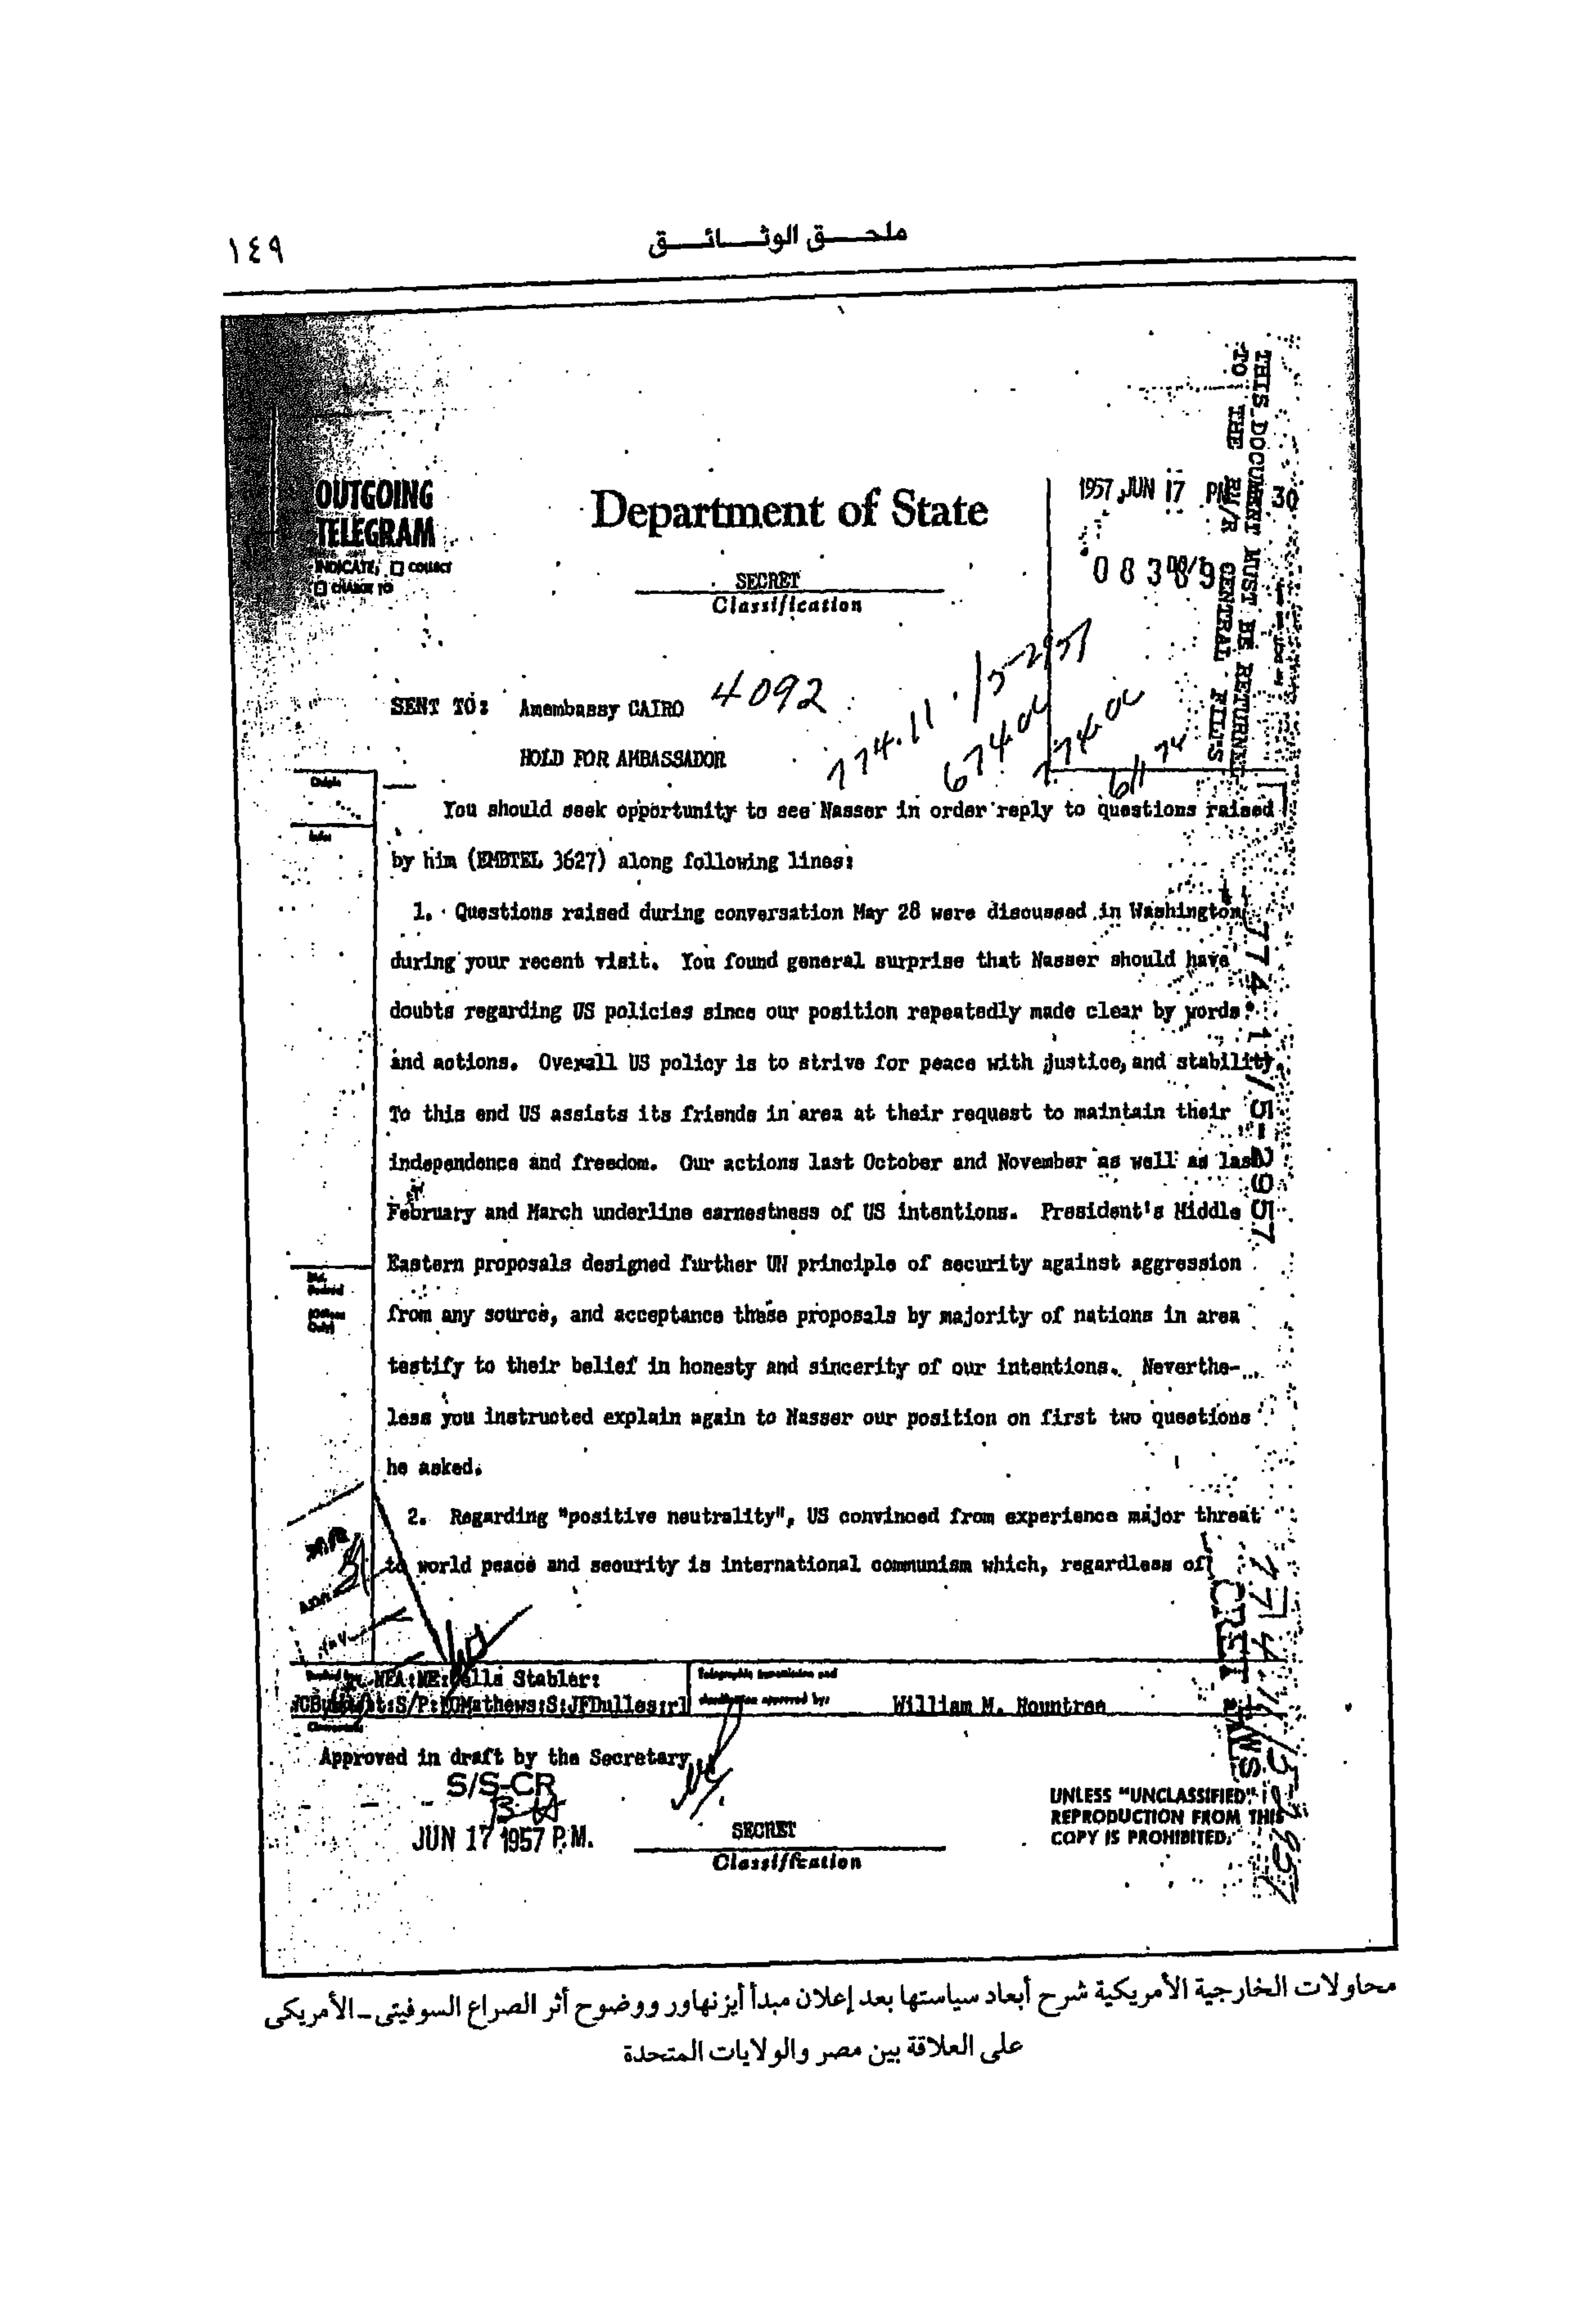 ملحـــق الوثـــائـــق
١٤٩
THIS DOCUMENT MUST BE RETURNED
TO THE RM/R CENTRAL FILES
OUTGOING
TELEGRAM
INDICATE: COLLECT
CHARGE TO
Department of State
1957 JUN 17 PM 30
SECRET
Classification
SENT TO: Amembassy CAIRO 4092
HOLD FOR AMBASSADOR
You should seek opportunity to see Nasser in order reply to questions raised
by him (EMBTEL 3627) along following lines:
1. Questions raised during conversation May 28 were discussed in Washington
during your recent visit. You found general surprise that Nasser should have
doubts regarding US policies since our position repeatedly made clear by words
and actions. Overall US policy is to strive for peace with justice, and stability.
To this end US assists its friends in area at their request to maintain their
independence and freedom. Our actions last October and November as well as last
February and March underline earnestness of US intentions. President's Middle
Eastern proposals designed further UN principle of security against aggression
from any source, and acceptance these proposals by majority of nations in area
testify to their belief in honesty and sincerity of our intentions. Neverthe-
less you instructed explain again to Nasser our position on first two questions
he asked.
2. Regarding "positive neutrality", US convinced from experience major threat
to world peace and security is international communism which, regardless of
774.11/5-2957
NEA:NE:Wells Stabler:
S/P: Mathews:S:JFDulles:rl
William M. Rountree
Approved in draft by the Secretary
S/S-CR
JUN 17 1957 P.M.
SECRET
Classification
UNLESS "UNCLASSIFIED"
REPRODUCTION FROM THIS
COPY IS PROHIBITED.
محاولات الخارجية الأمريكية شرح أبعاد سياستها بعد إعلان مبدأ أيزنهاور ووضوح أثر الصراع السوفيتى ـ الأمريكى
على العلاقة بين مصر والولايات المتحدة